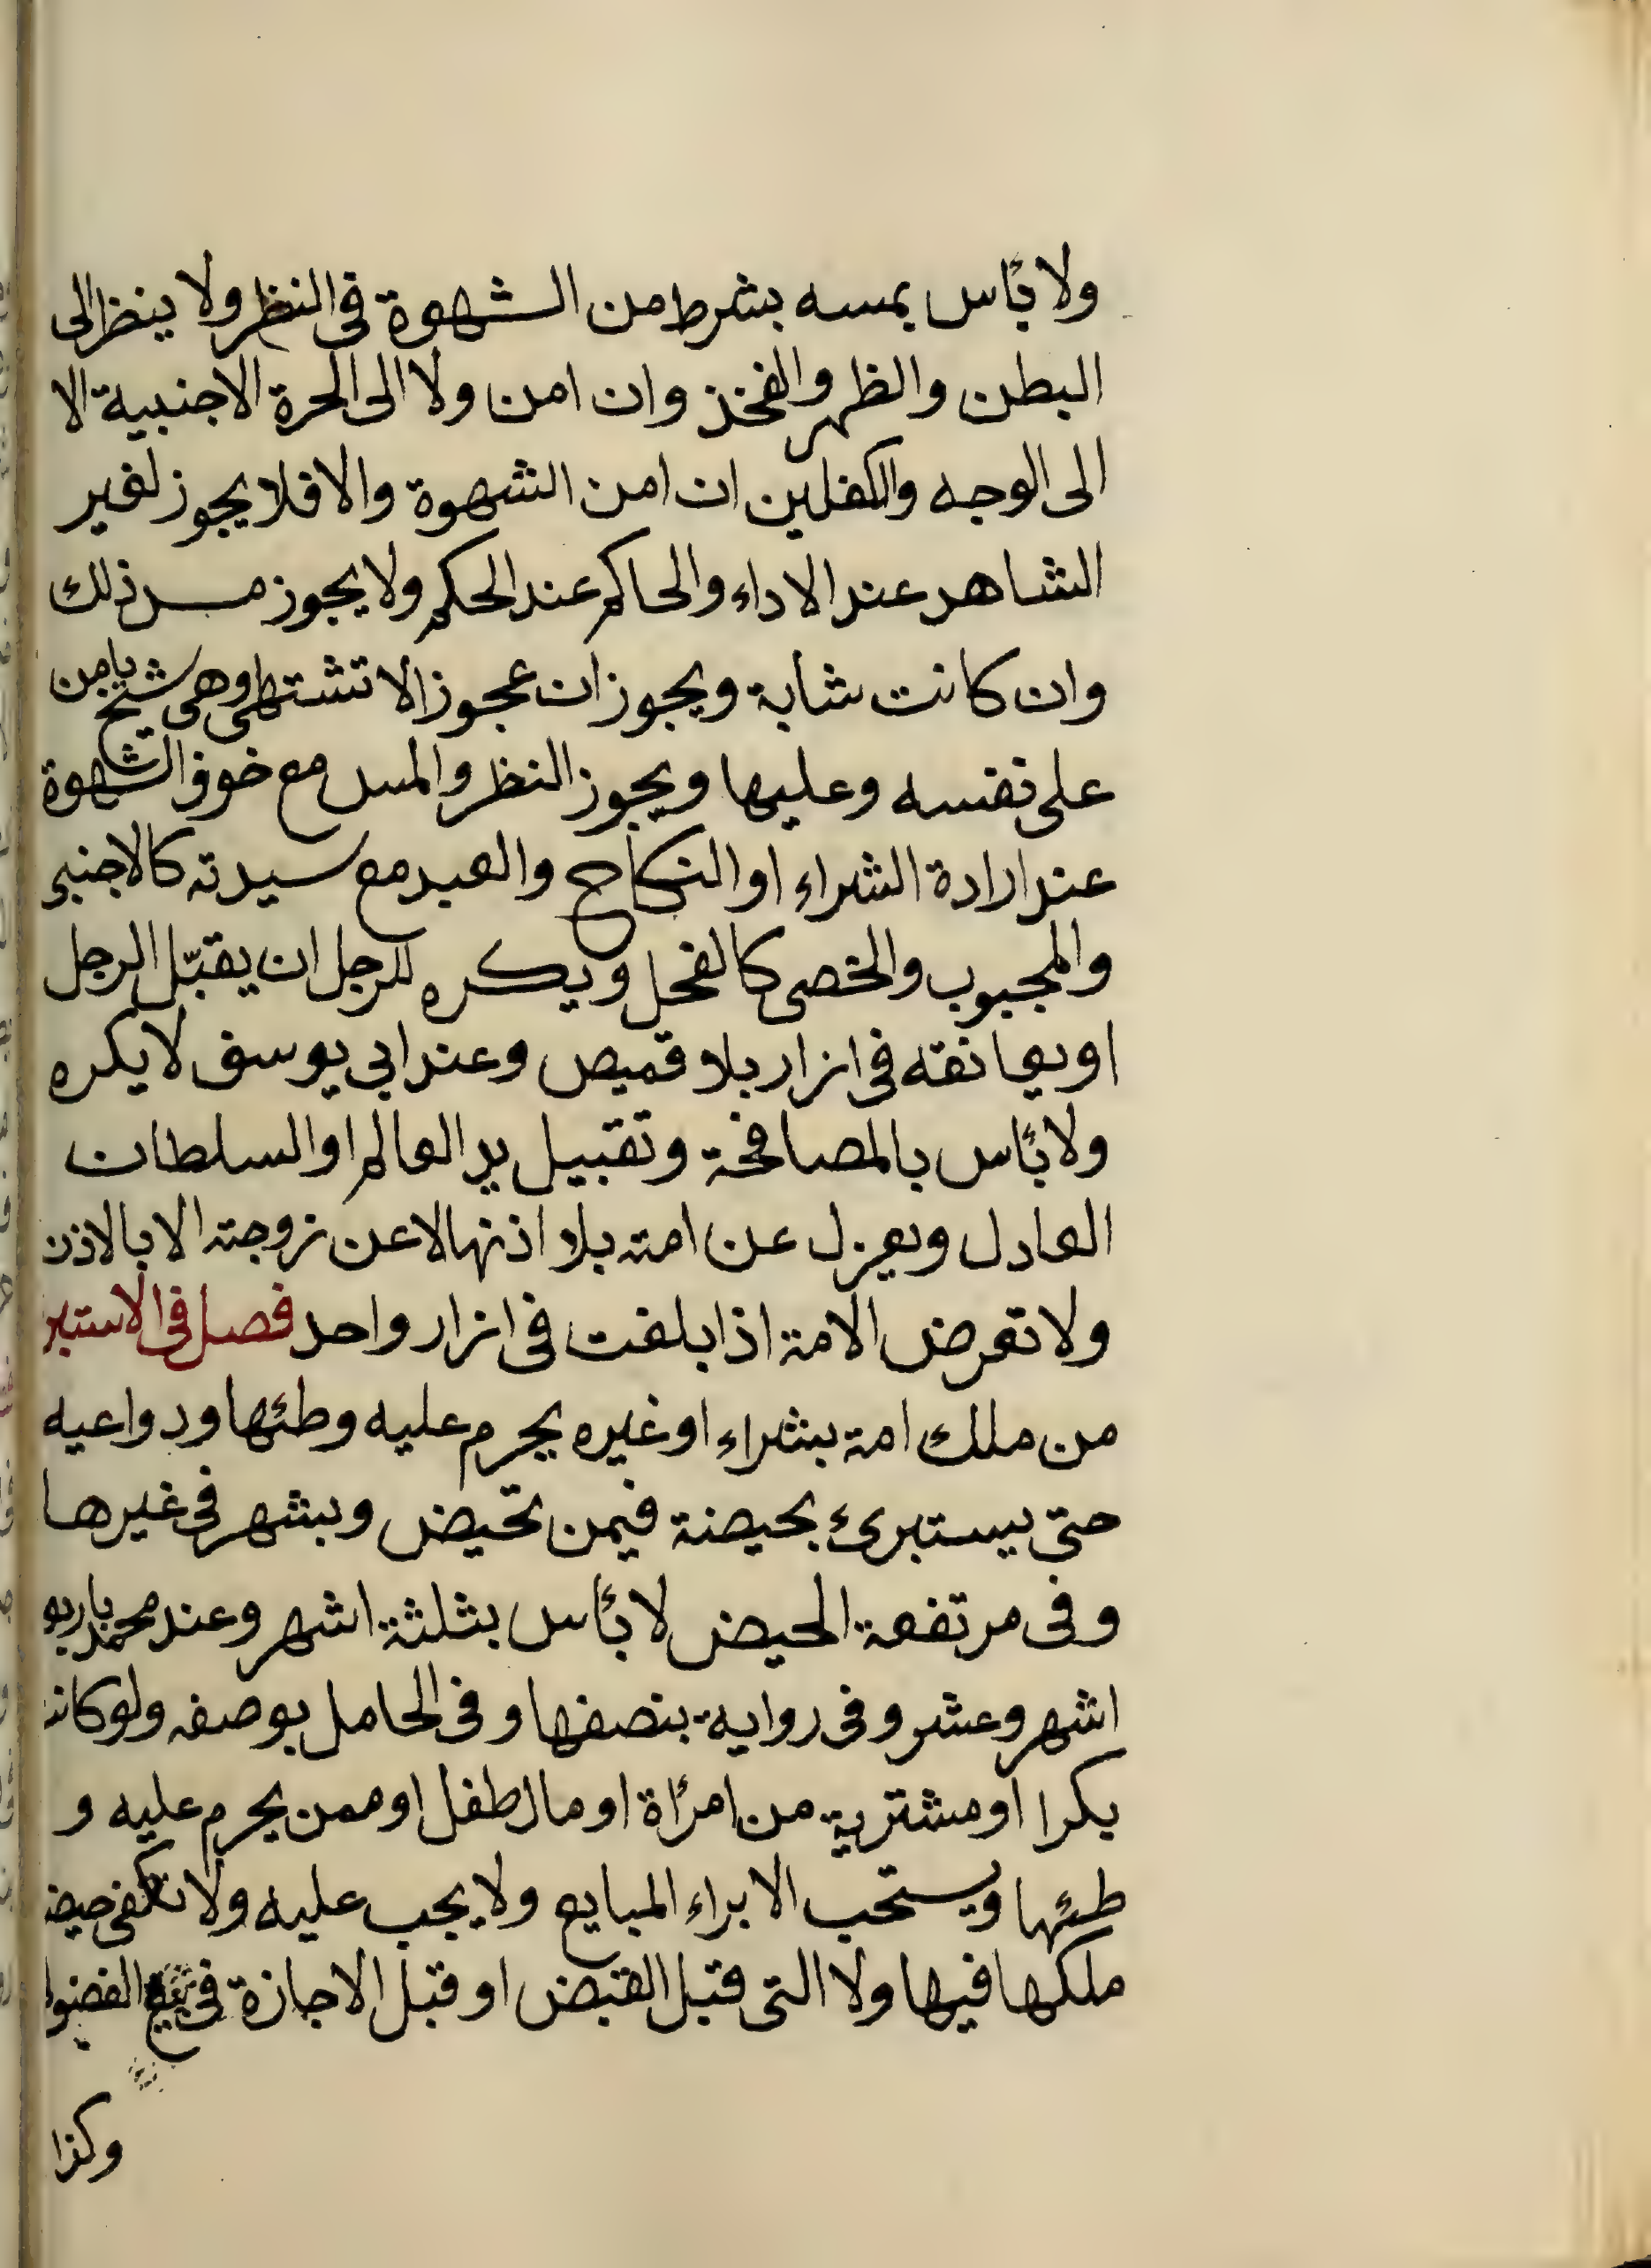 ولا بأس بمسه بشرط من الشهوة فى النظر ولا ينظر الى
البطن والظهر والفخذ وان امن ولا الى الحرة الاجنبية الا
الى الوجه والكفلين ان امن الشهوة والا فلا يجوز لغير
الشاهد عند الاداء والحاكم عند الحكم ولا يجوز مس ذلك
وان كانت شابة ويجوز ان عجوزا لا تشتهى وهى شيخ يامن
على نفسه وعليها ويجوز النظر والمس مع خوف الشهوة
عند ارادة الشراء او النكاح والعبد مع سيدته كالاجنبى
والمجبوب والخصى كالفحل ويكره للرجل ان يقبّل الرجل
او يعانقه فى ازار بلا قميص وعند ابي يوسف لا يكره
ولا بأس بالمصافحة وتقبيل يد العالم او السلطان
العادل ويعزل عن امته بلا اذنها لا عن زوجته الا بالاذن
ولا تعرض الامة اذا بلغت فى ازار واحد فصل فى الاستبر
من ملك امة بشراء او غيره يحرم عليه وطئها ودواعيه
حتى يستبرئ بحيضة فيمن تحيض وبشهر فى غيرها
وفى مرتفعة الحيض لا بأس بثلثة اشهر وعند محمد باربع
اشهر وعشر وفى رواية بنصفها وفى الحامل بوضعه ولو كانت
بكرا او مشترية من امرأة او مال طفل او ممن يحرم عليه و
طئها ويستحب الابراء المبايع ولا يجب عليه ولا تكفى حيضة
ملكها فيها ولا التى قبل القبض او قبل الاجازة فى بيع الفضول
وكذا